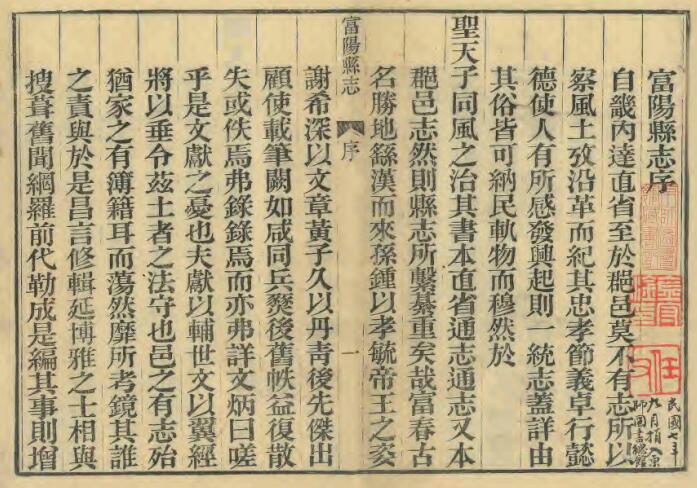 富陽縣志序
自畿內達直省至於郡邑莫不有志所以
察風土攷沿革而紀其忠孝節義卓行懿
德使人有所感發興起則一統志蓋詳由
其俗皆可納民軌物而穆然於
聖天子同風之治其書本直省通志通志又本
郡邑志然則縣志所繫綦重矣哉富春古
名勝地繇漢而來孫鍾以孝毓帝王之姿
富陽縣志
序
一
謝希深以文章黃子久以丹青後先傑出
顧使載筆闕如咸同兵燹後舊帙益復散
失或佚焉弗錄錄焉而亦弗詳文炳曰嗟
乎是文獻之憂也夫獻以輔世文以翼經
將以垂令茲土者之法守也邑之有志殆
猶家之有簿籍耳而蕩然靡所考鏡其誰
之責與於是昌言修輯延博雅之士相與
搜葺舊聞網羅前代勒成是編其事則增
民國七年
九月捐入京
師圖書館